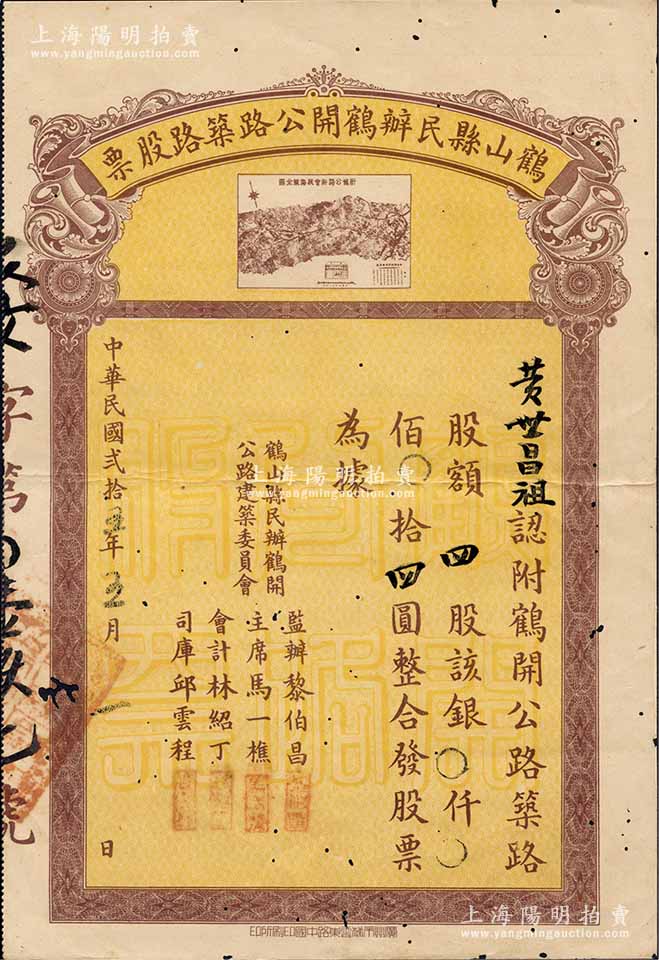 上海陽明拍賣
www.yangmingauction.com
鶴山縣民辦鶴開公路築路股票
黄世昌祖認附鶴開公路築路
股額四股該銀〇仟〇
佰〇拾四圓整合發股票
為據
鶴山縣民辦鶴開
公路建築委員會
監辦黎伯昌
主席馬一樵
會計林紹丁
司庫邱雲程
中華民國貳拾年月日
字第號
上海陽明拍賣
www.yangmingauction.com
上海陽明拍賣
www.yangmingauction.com